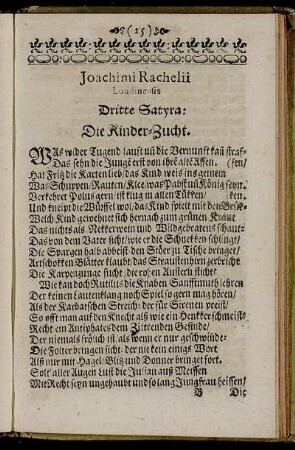 (15)
Joachimi Rachelii
Londinensis
Dritte Satyra:
Die Kinder-Zucht.
WAs wider Tugend laufft uñ die Vernunft kañ straf-
Das sehn die Jungẽ erst von ihrẽ altẽ Affen. (fen/
Hat Fritz die Karten lieb/das Kind weis ins gemein
Was Schuppen/Rauten/Klee/was Pabst uñ König seyn.
Verkehret Polisgern/ist klug in allen Tükken/ ken/
Und kneipt die Würffel wol/das Kind spielt mit den
Welch Kind gewehnet sich hernach zum grünen
Das nichts als Nekkerwein und Wildgebratens schaut
Das von dem Vater sicht/wie er die Schnekken schlingt/
Die Spargen halb abbeist/den Stöer zu Tische bringet/
Artschokken Blätter klaubt/das Straussenhirn gerbricht
Die Karpenzunge sucht/die rohen Austerlu sticht/
Wie kan doch Rutilus die Knaben Sanfftmuht lehren
Der keinen Lautenklang noch Spiel so gern mag hören/
Als der Karbatschen Streich: der für Sirenen preist/
So offt man auf den Knecht als wie ein Henkker schmeist
Recht ein Antiphates dem Zittrenden Gesinde/
Der niemals frölich ist als wenn er nur geschwinde
Die Folter bringen sicht: der nie kein einigs Wort
Als nur mit Hagel/Blitz und Donner bringet fort.
Solt aller Augen Lust die Julian auß Meissen
Mit Recht seyn ungehaubt und so lang Jungfrau heissen/
B Die